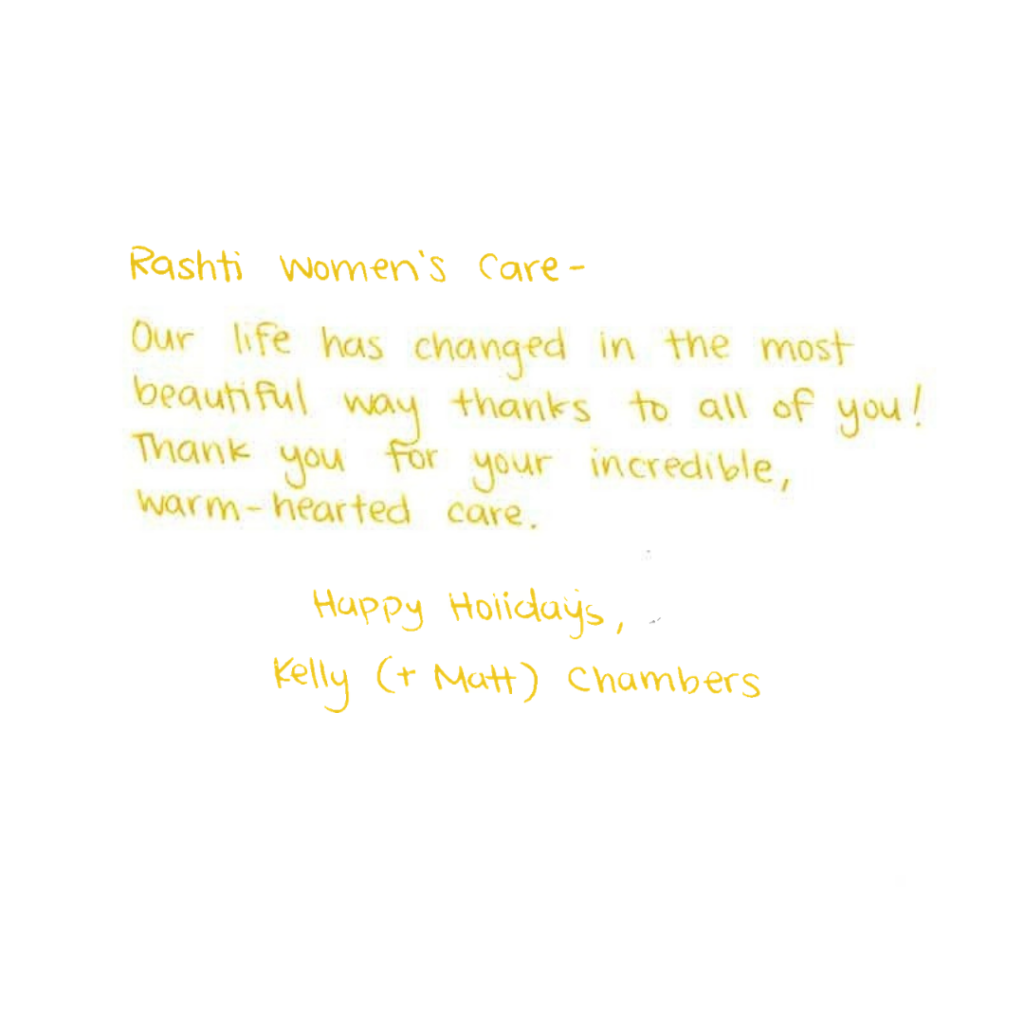 Rashti Women's Care -
Our life has changed in the most
beautiful way thanks to all of you!
Thank you for your incredible,
warm-hearted care.
Happy Holidays,
Kelly (+ Matt) Chambers